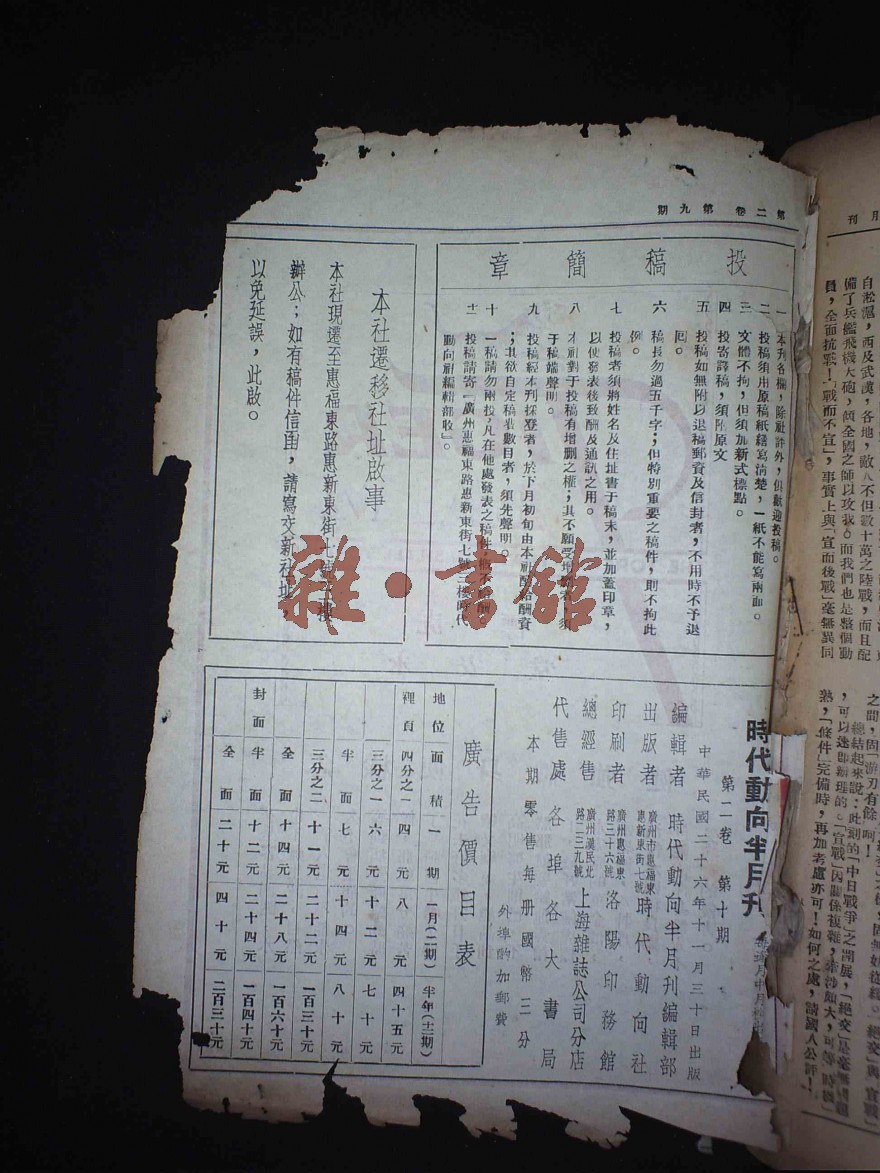 第二卷 第九期
投稿簡章
一 本刊各欄，除社評外，俱歡迎投稿。
二 投稿須用原稿紙繕寫清楚，一紙不能寫兩面。
三 文體不拘，但須加新式標點。
四 投寄譯稿，須附原文
五 投稿如無附以退稿郵資及信封者，不用時不予退
回。
六 稿長勿過五千字；但特別重要之稿件，則不拘此
例。
七 投稿者須將姓名及住址書于稿末，並加蓋印章，
以便發表後致酬及通訊之用。
八 本社對于投稿有增刪之權；其不願受增刪者，須
于稿端聲明。
九 投稿經本刊採登者，於下月初旬由本社酌給酬資
；其欲自定稿費數目者，須先聲明。
十 一稿請勿兩投，凡在他處發表之稿件，
十一 投稿請寄「廣州惠福東路惠新東街七號二樓時代
動向社編輯部收」。
本社遷移社址啟事
本社現遷至惠福東路惠新東街七號二樓
辦公；如有稿件信函，請寫交新社址，
以免延誤，此啟。
時代動向半月刊
第二卷 第十期
中華民國二十六年十一月三十日出版
編輯者 時代動向半月刊編輯部
出版者 廣州市惠福東惠新東街七號 時代動向社
印刷者 廣州惠福東路三十六號 洛陽印務館
總經售 廣州漢民北路二三九號 上海雜誌公司分店
代售處 各埠各大書局
本期零售每册國幣三分
外埠酌加郵費
廣告價目表
地位 面積 一期 一月(二期) 半年(十二期)
裡頁 四分之一 四元 八元 四十五元
三分之一 六元 十二元 七十元
半面 七元 十四元 八十元
三分之二 十一元 二十二元 一百三十元
全面 十四元 二十八元 一百六十元
封面 半面 十二元 二十四元 一百四十元
全面 二十元 四十元 二百三十元
月刊
員，全面抗戰」「戰而不宣」，事實上與「宣而後戰」毫無異同
備了兵艦飛機大砲，傾全國之師以攻我。而我們也是整個動
自淞滬，西及武漢，各地，敵人不但數十萬之陸戰，而且配
熟，「條件」完備時，再加考慮亦可！如何之處，請國人公評！
總結起來說：此刻的「中日戰爭」之開展，「絕交」
之間，固「游刃有餘」呵！
雜·書館